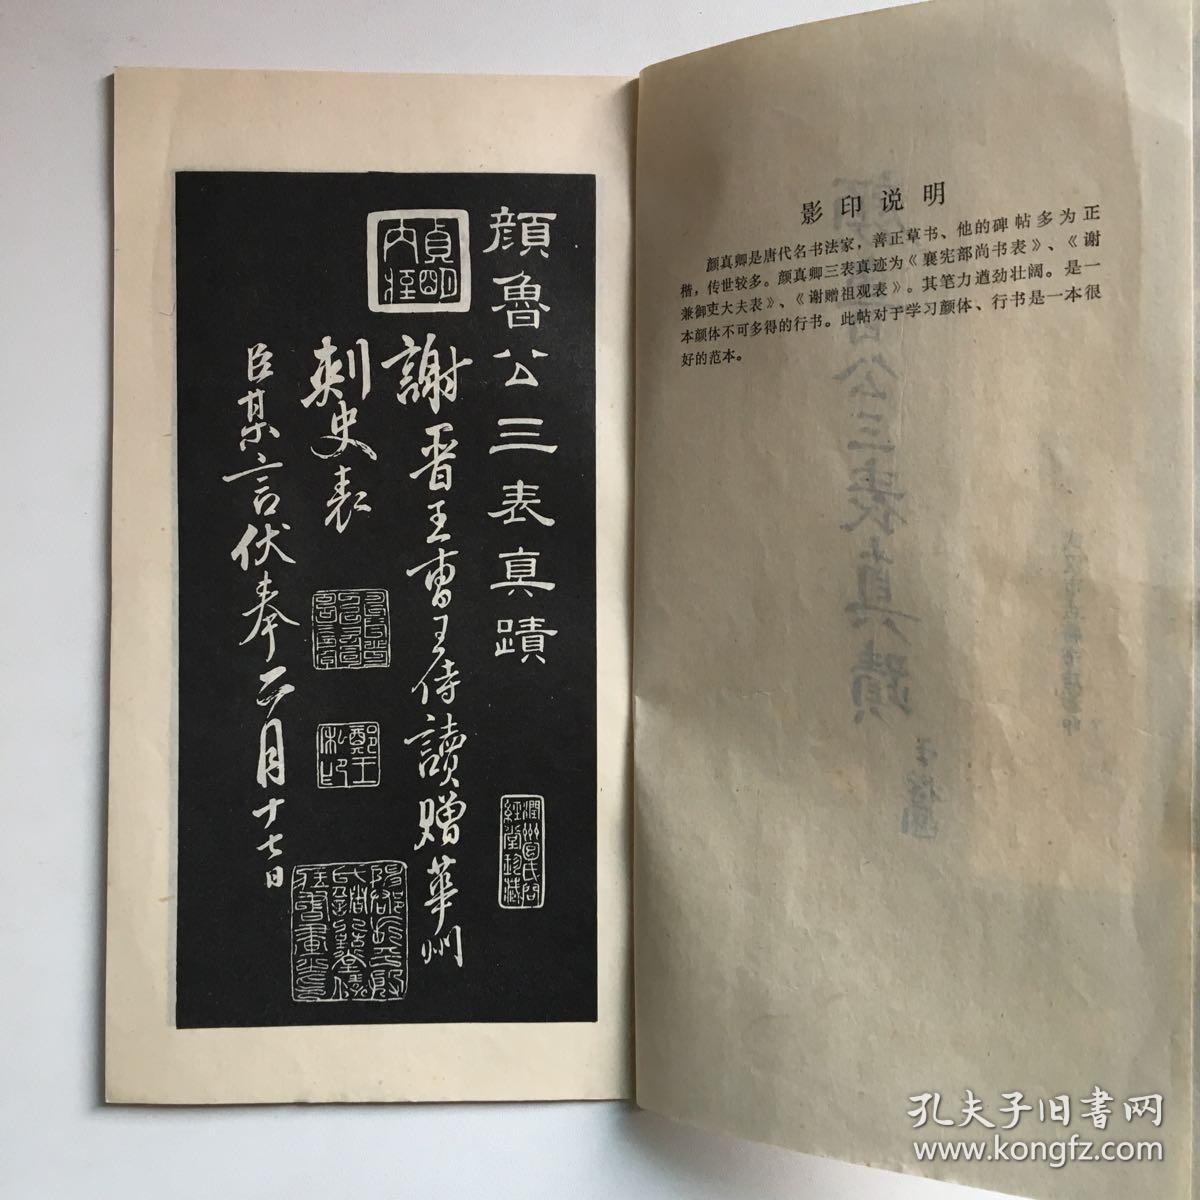 影印说明
颜真卿是唐代名书法家，善正草书、他的碑帖多为正
楷，传世较多。颜真卿三表真迹为《襄宪部尚书表》、《谢
兼御吏大夫表》、《谢赠祖观表》。其笔力遒劲壮阔。是一
本颜体不可多得的行书。此帖对于学习颜体、行书是一本很
好的范本。
顔魯公三表真蹟
謝晋王曹王侍讀贈華州
刺史表
臣某言伏奉二月十七日
貞明
内
鄭王
私印
孔夫子旧书网
www.kongfz.com